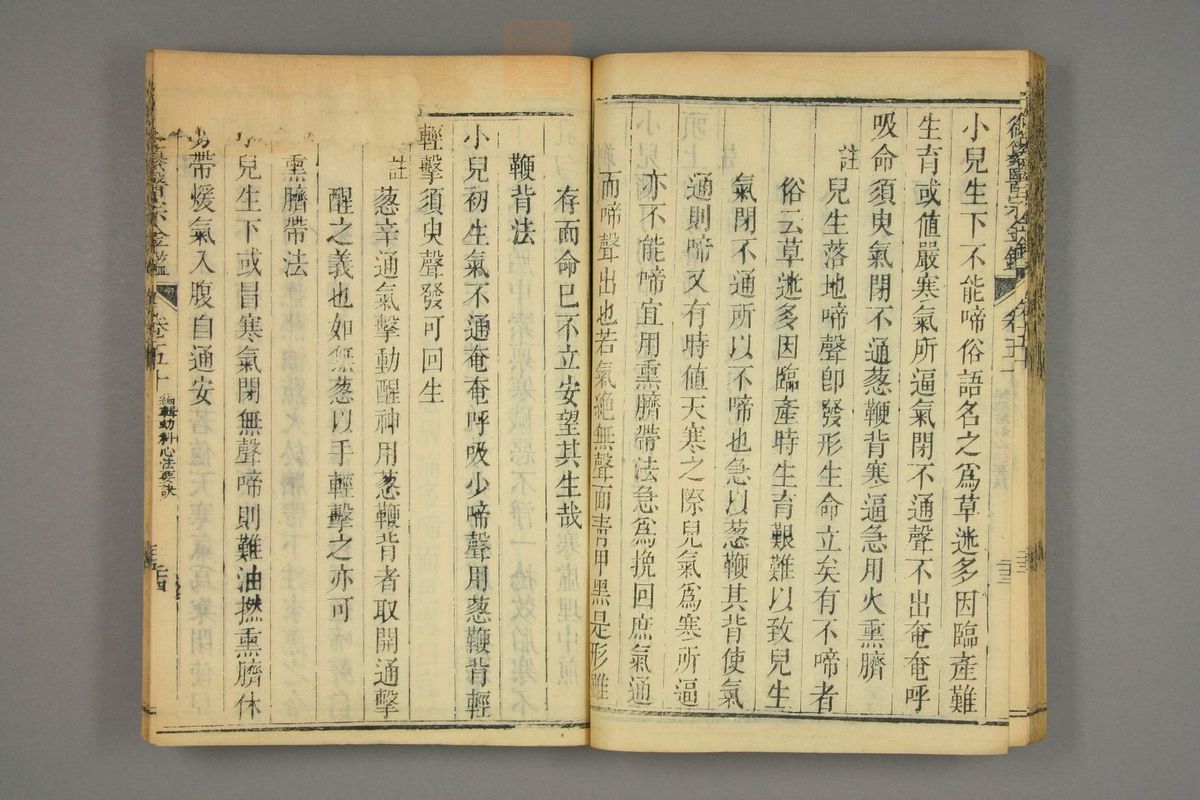 小兒生下不能啼俗語名之爲草迷多因臨產難
生育或值嚴寒氣所逼氣閉不通聲不出奄奄呼
吸命須臾氣閉不通葱鞭背寒逼急用火熏臍
註
兒生落地啼聲卽發形生命立矣有不啼者
俗云草迷多因臨產時生育艱難以致兒生
氣閉不通所以不啼也急以葱鞭其背使氣
通則啼又有時値天寒之際兒氣爲寒所逼
亦不能啼宜用熏臍帶法急爲挽回庶氣通
而啼聲出也若氣絶無聲面靑甲黑是形雖
存而命已不立安望其生哉
鞭背法
小兒初生氣不通奄奄呼吸少啼聲用葱鞭背輕
輕擊須臾聲發可回生
註
葱辛通氣擊動醒神用葱鞭背者取開通擊
醒之義也如無葱以手輕擊之亦可
熏臍帶法
兒生下或冒寒氣閉無聲啼則難油撚熏臍休
帶煖氣入腹自通安
醫宗金鑑 卷五十 編輯幼科心法要訣